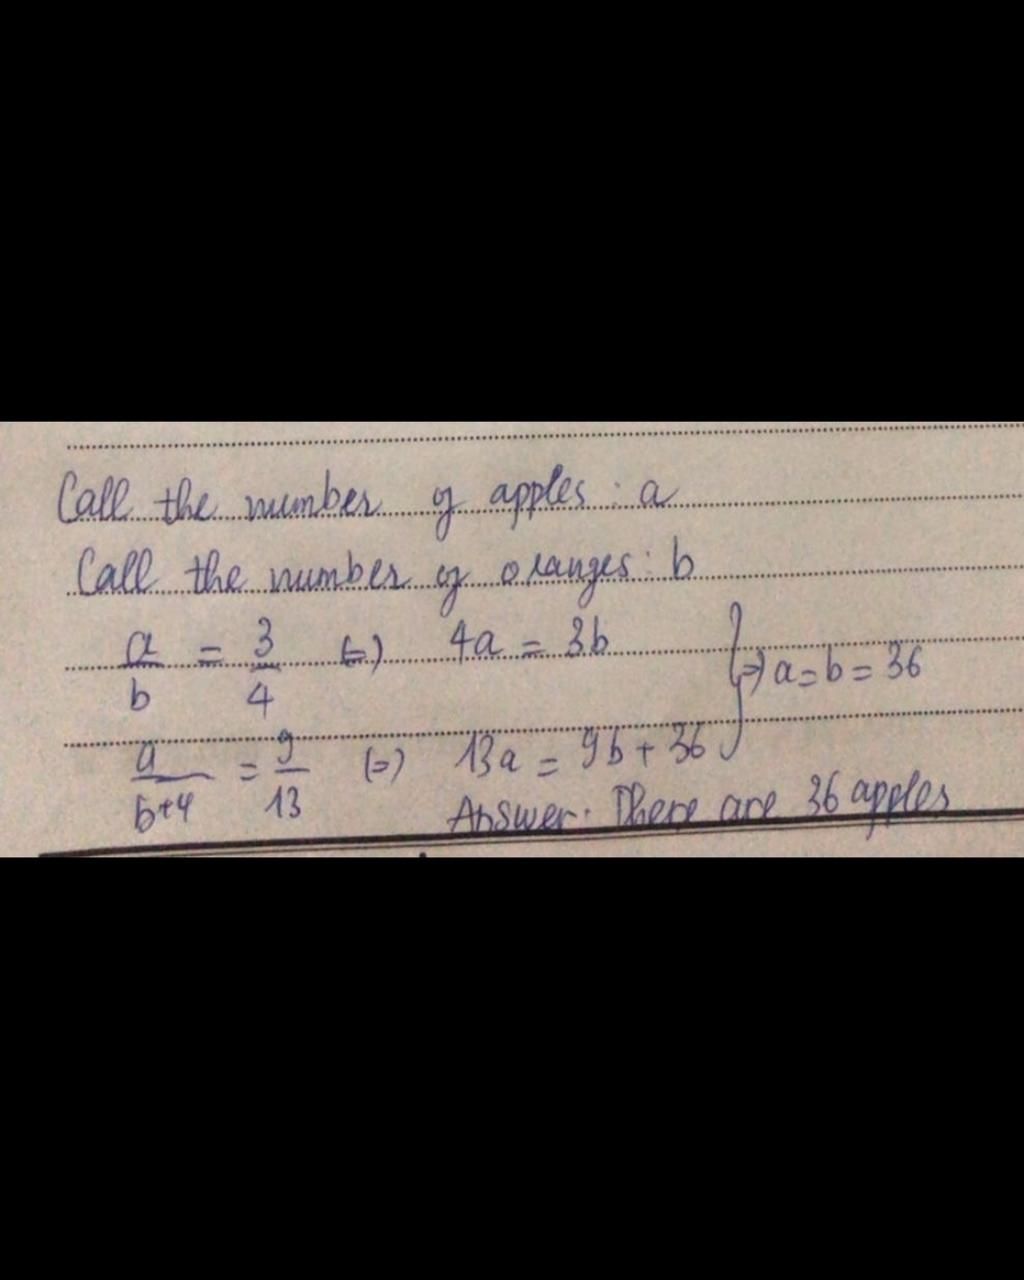 Call the number of apples: a
Call the number of oranges: b
a/b = 3/4 (=) 4a = 3b
a/b+4 = 9/13 (=) 13a = 9b + 36
} =) a = b = 36
Answer: There are 36 apples